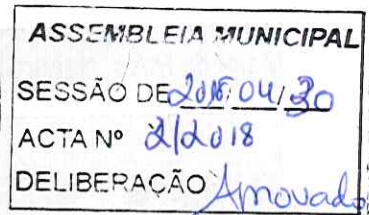 ASSEMBLEIA MUNICIPAL
SESSÃO DE 2018/04/30
ACTA Nº 2/2018
DELIBERAÇÃO Aprovado